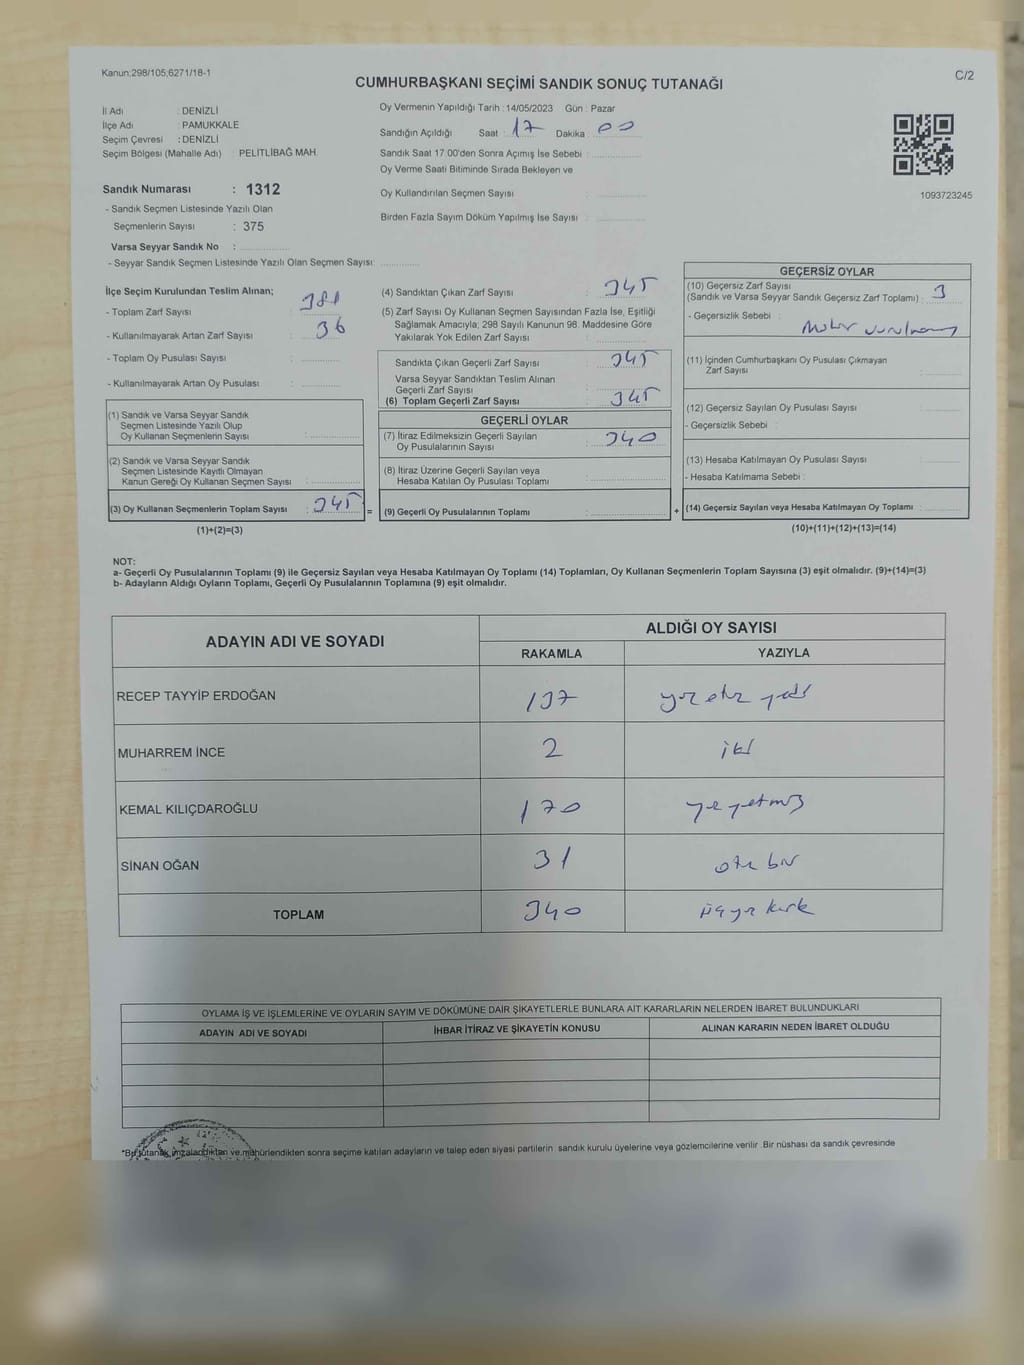 Kanun;298/105;6271/18-1
C/2
CUMHURBAŞKANI SEÇİMİ SANDIK SONUÇ TUTANAĞI
İl Adı : DENİZLİ
İlçe Adı : PAMUKKALE
Seçim Çevresi : DENİZLİ
Seçim Bölgesi (Mahalle Adı) : PELİTLİBAĞ MAH.
Sandık Numarası : 1312
- Sandık Seçmen Listesinde Yazılı Olan
Seçmenlerin Sayısı : 375
Varsa Seyyar Sandık No :
- Seyyar Sandık Seçmen Listesinde Yazılı Olan Seçmen Sayısı:
Oy Vermenin Yapıldığı Tarih : 14/05/2023 Gün : Pazar
Sandığın Açıldığı Saat : 17 Dakika : 00
Sandık Saat 17:00'den Sonra Açımış İse Sebebi :
Oy Verme Saati Bitiminde Sırada Bekleyen ve
Oy Kullandırılan Seçmen Sayısı :
Birden Fazla Sayım Döküm Yapılmış İse Sayısı :
1093723245
İlçe Seçim Kurulundan Teslim Alınan;
- Toplam Zarf Sayısı : 381
- Kullanılmayarak Artan Zarf Sayısı : 36
- Toplam Oy Pusulası Sayısı :
- Kullanılmayarak Artan Oy Pusulası :
(1) Sandık ve Varsa Seyyar Sandık
Seçmen Listesinde Yazılı Olup
Oy Kullanan Seçmenlerin Sayısı :
(2) Sandık ve Varsa Seyyar Sandık
Seçmen Listesinde Kayıtlı Olmayan
Kanun Gereği Oy Kullanan Seçmen Sayısı :
(3) Oy Kullanan Seçmenlerin Toplam Sayısı : 345 =
(1)+(2)=(3)
(4) Sandıktan Çıkan Zarf Sayısı : 345
(5) Zarf Sayısı Oy Kullanan Seçmen Sayısından Fazla İse, Eşitliği
Sağlamak Amacıyla; 298 Sayılı Kanunun 98. Maddesine Göre
Yakılarak Yok Edilen Zarf Sayısı :
Sandıkta Çıkan Geçerli Zarf Sayısı : 345
Varsa Seyyar Sandıktan Teslim Alınan
Geçerli Zarf Sayısı :
(6) Toplam Geçerli Zarf Sayısı : 345
GEÇERLİ OYLAR
(7) İtiraz Edilmeksizin Geçerli Sayılan : 340
Oy Pusulalarının Sayısı
(8) İtiraz Üzerine Geçerli Sayılan veya
Hesaba Katılan Oy Pusulası Toplamı :
(9) Geçerli Oy Pusulalarının Toplamı : +
GEÇERSİZ OYLAR
(10) Geçersiz Zarf Sayısı
(Sandık ve Varsa Seyyar Sandık Geçersiz Zarf Toplamı) : 3
- Geçersizlik Sebebi :
(11) İçinden Cumhurbaşkanı Oy Pusulası Çıkmayan
Zarf Sayısı :
(12) Geçersiz Sayılan Oy Pusulası Sayısı :
- Geçersizlik Sebebi :
(13) Hesaba Katılmayan Oy Pusulası Sayısı :
- Hesaba Katılmama Sebebi :
(14) Geçersiz Sayılan veya Hesaba Katılmayan Oy Toplamı :
(10)+(11)+(12)+(13)=(14)
NOT:
a- Geçerli Oy Pusulalarının Toplamı (9) ile Geçersiz Sayılan veya Hesaba Katılmayan Oy Toplamı (14) Toplamları, Oy Kullanan Seçmenlerin Toplam Sayısına (3) eşit olmalıdır. (9)+(14)=(3)
b- Adayların Aldığı Oyların Toplamı, Geçerli Oy Pusulalarının Toplamına (9) eşit olmalıdır.
ADAYIN ADI VE SOYADI
ALDIĞI OY SAYISI
RAKAMLA YAZIYLA
RECEP TAYYİP ERDOĞAN 137 yüzotuz yedi
MUHARREM İNCE 2 iki
KEMAL KILIÇDAROĞLU 170 yüzyetmiş
SİNAN OĞAN 31 otuz bir
TOPLAM 340 üçyüz kırk
OYLAMA İŞ VE İŞLEMLERİNE VE OYLARIN SAYIM VE DÖKÜMÜNE DAİR ŞİKAYETLERLE BUNLARA AİT KARARLARIN NELERDEN İBARET BULUNDUKLARI
ADAYIN ADI VE SOYADI İHBAR İTİRAZ VE ŞİKAYETİN KONUSU ALINAN KARARIN NEDEN İBARET OLDUĞU
*Bu tutanak imzalandıktan ve mühürlendikten sonra seçime katılan adayların ve talep eden siyasi partilerin sandık kurulu üyelerine veya gözlemcilerine verilir. Bir nüshası da sandık çevresinde